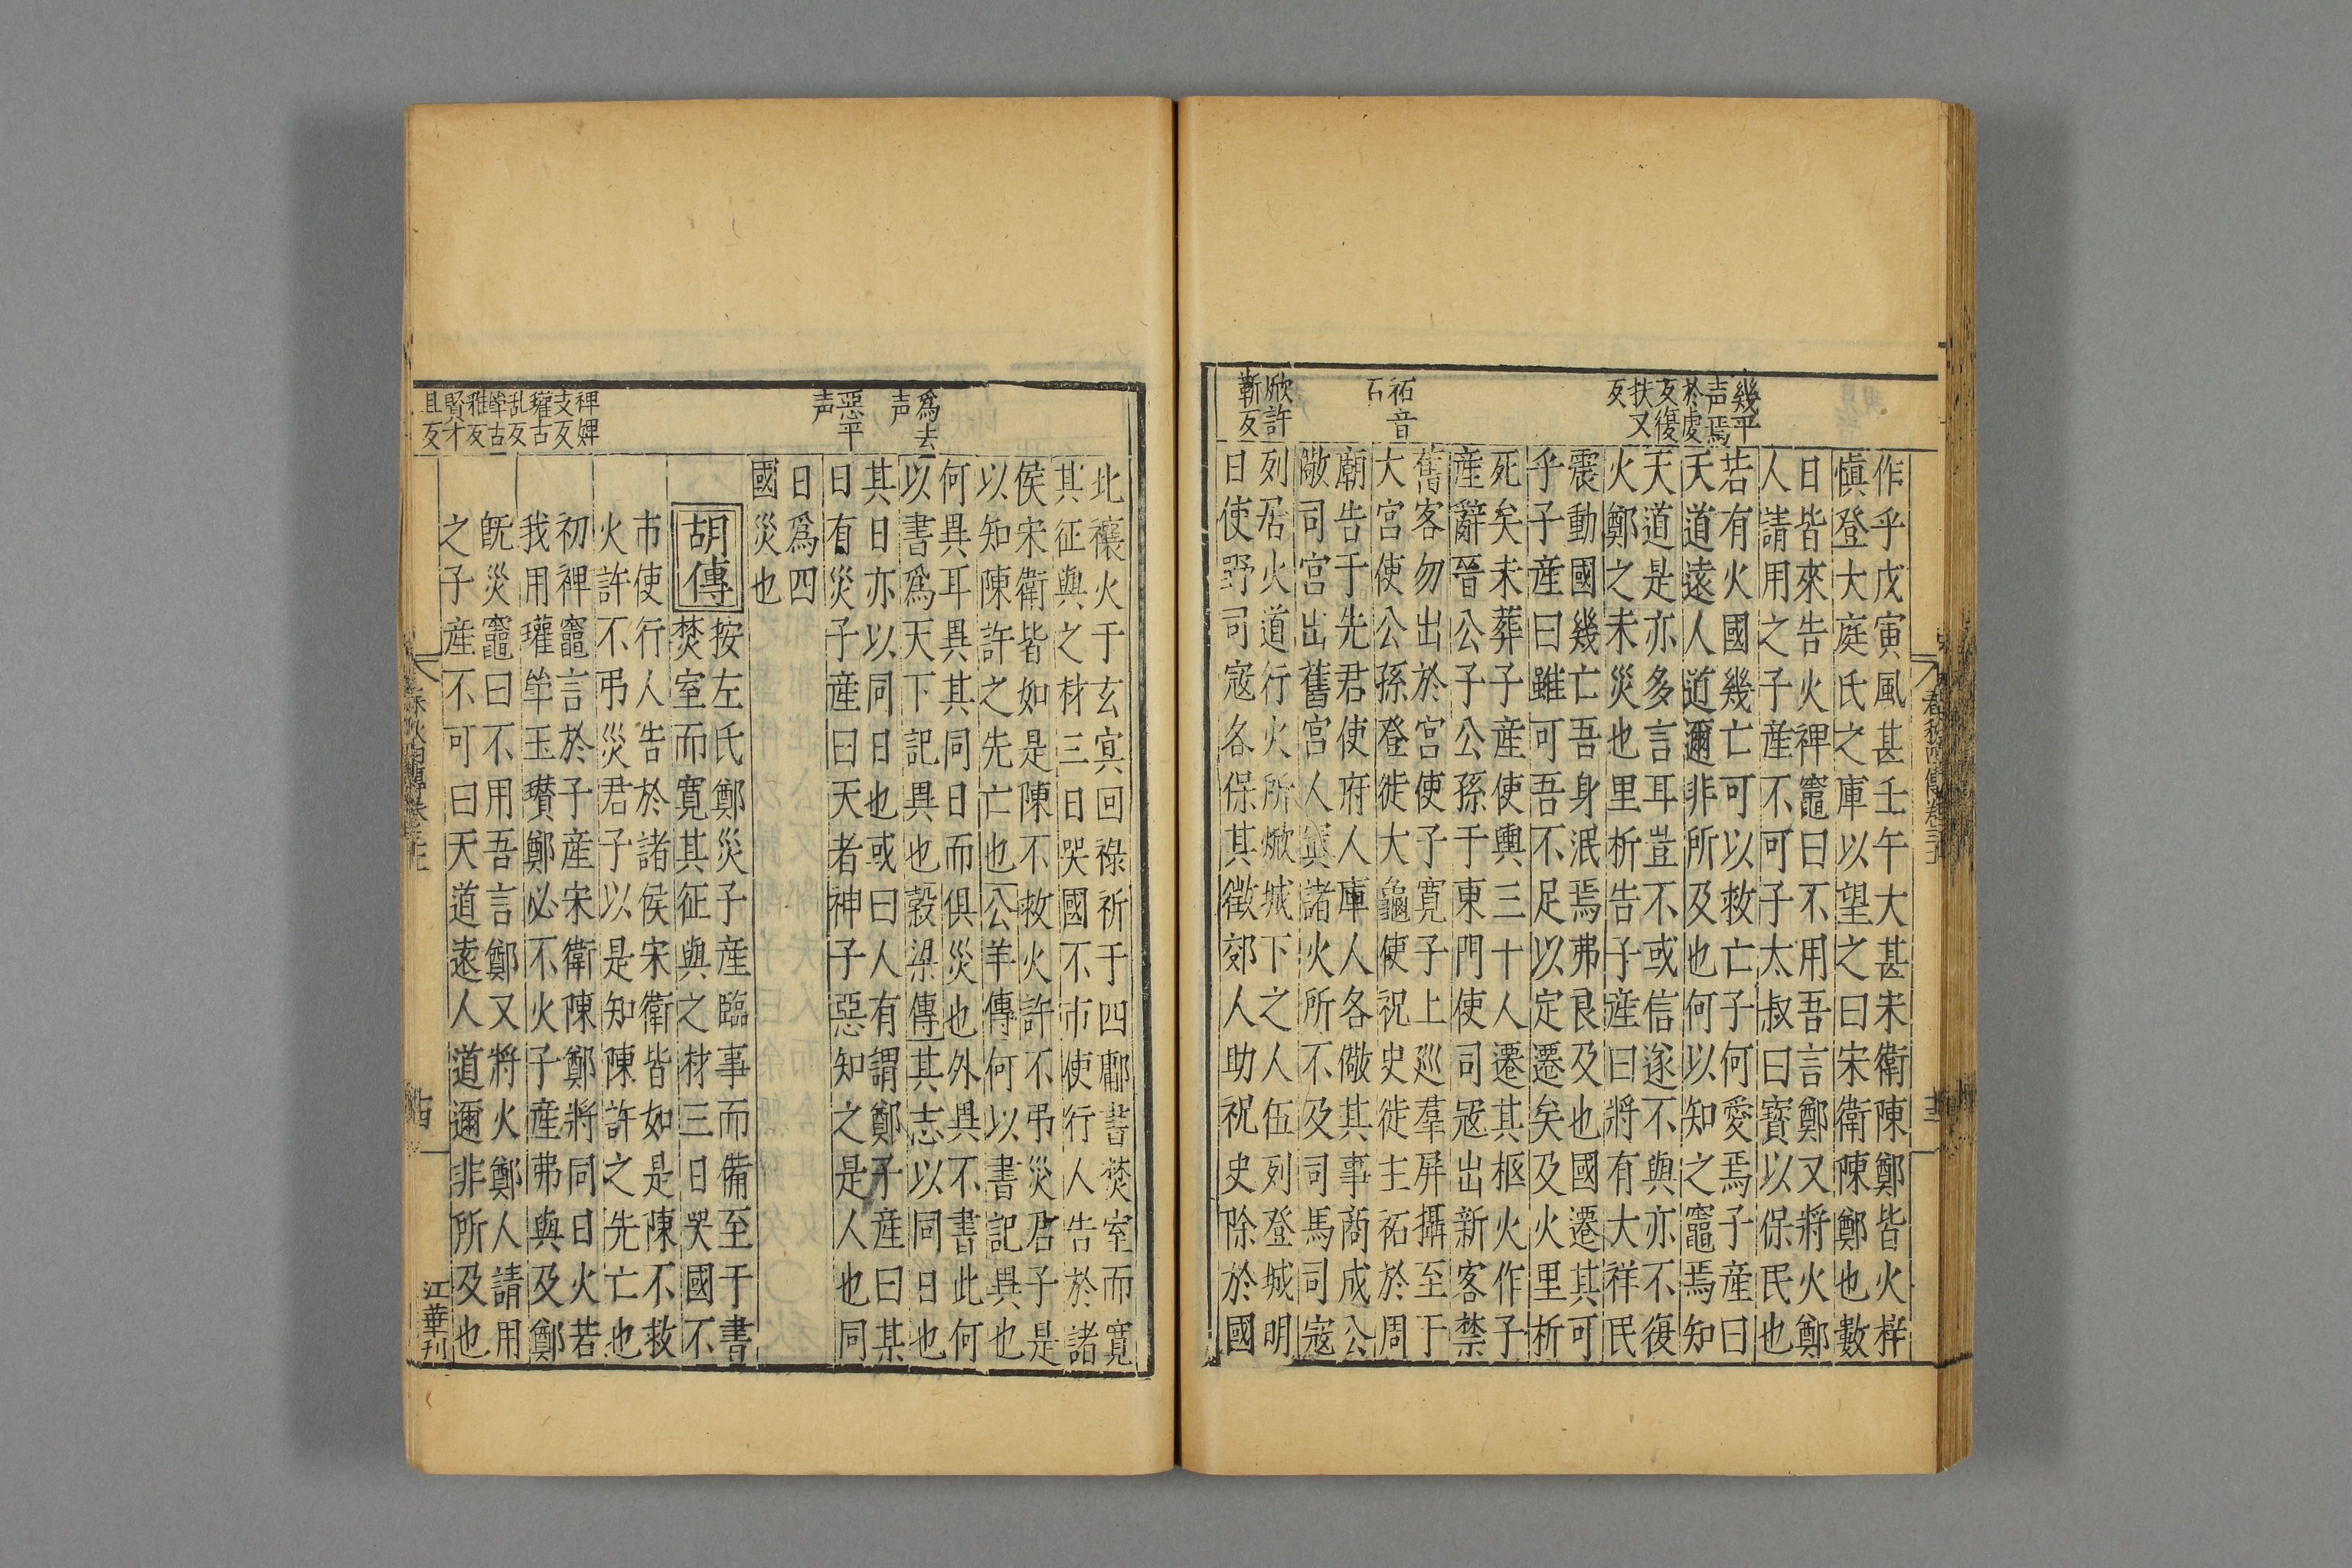 幾平
声焉
於處
反復
扶又
反
祏音
石
焮許
靳反
作乎戊寅風甚壬午大甚宋衛陳鄭皆火梓
慎登大庭氏之庫以望之曰宋衛陳鄭也數
日皆來告火裨竈曰不用吾言鄭又將火鄭
人請用之子產不可子太叔曰寳以保民也
若有火國幾亡可以救亡子何愛焉子產曰
天道遠人道邇非所及也何以知之竈焉知
天道是亦多言耳豈不或信遂不與亦不復
火鄭之未災也里析告子產曰將有大祥民
震動國幾亡吾身泯焉弗良及也國遷其可
乎子產曰雖可吾不足以定遷矣及火里析
死矣未葬子產使輿三十人遷其柩火作子
產辭晉公子公孫于東門使司寇出新客禁
舊客勿出於宮使子寬子上巡羣屏攝至于
大宮使公孫登徙大龜使祝史徙主祏於周
廟告于先君使府人庫人各儆其事商成公
儆司宮出舊宮人寘諸火所不及司馬司寇
列居火道行火所焮城下之人伍列登城明
日使野司寇各保其徵郊人助祝史除於國
爲去
声
惡平
声
裨婢
支反
瓘古
亂反
斝古
雅反
賢才
且反
北禳火于玄冥回祿祈于四鄘書焚室而寬
其征與之材三日哭國不市使行人告於諸
侯宋衛皆如是陳不救火許不弔災君子是
以知陳許之先亡也公羊傳何以書記異也
何異耳異其同日而俱災也外異不書此何
以書爲天下記異也穀梁傳其志以同日也
其日亦以同日也或曰人有謂鄭子產曰某
日有災子產曰天者神子惡知之是人也同
日爲四
國災也
胡傳
按左氏鄭災子產臨事而備至于書
焚室而寬其征與之材三日哭國不
市使行人告於諸侯宋衛皆如是陳不救
火許不弔災君子以是知陳許之先亡也
初裨竈言於子產宋衛陳鄭將同日火若
我用瓘斝玉瓚鄭必不火子產弗與及鄭
旣災竈曰不用吾言鄭又將火鄭人請用
之子產不可曰天道遠人道邇非所及也
江華刊